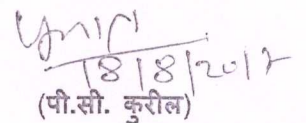 18/8/2017
(पी.सी. कुरील)